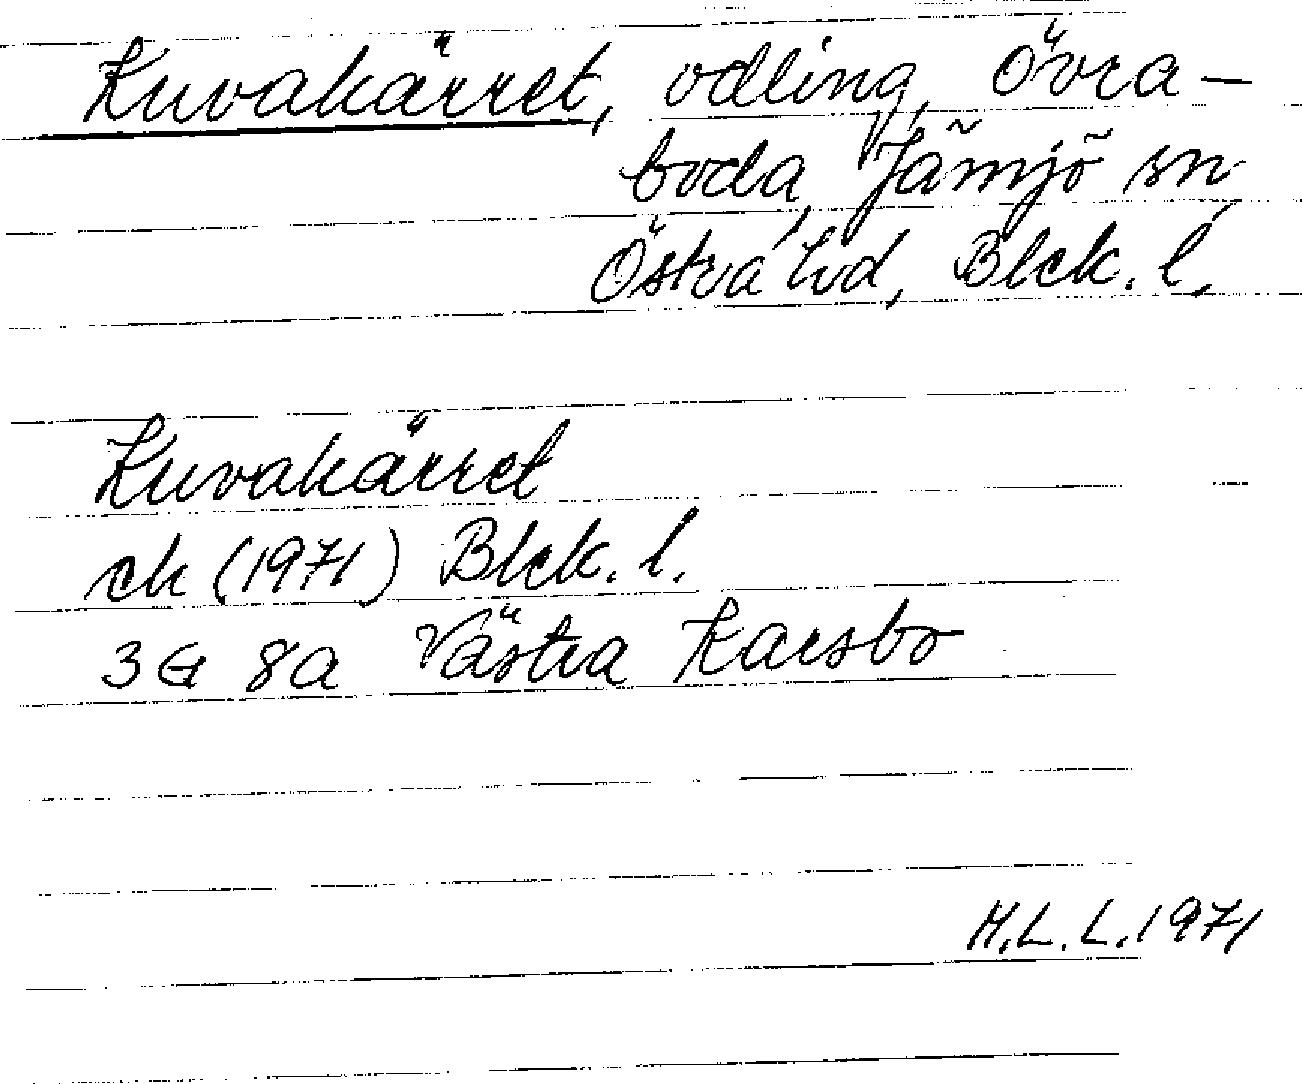 Kuvakärret, odling, Övra-
boda, Jämjö sn,
Östra hd, Blek. l.
Kuvakärret
ek (1971) Blek. l.
3G 8a Västra Karsbo
H.L.L. 1971